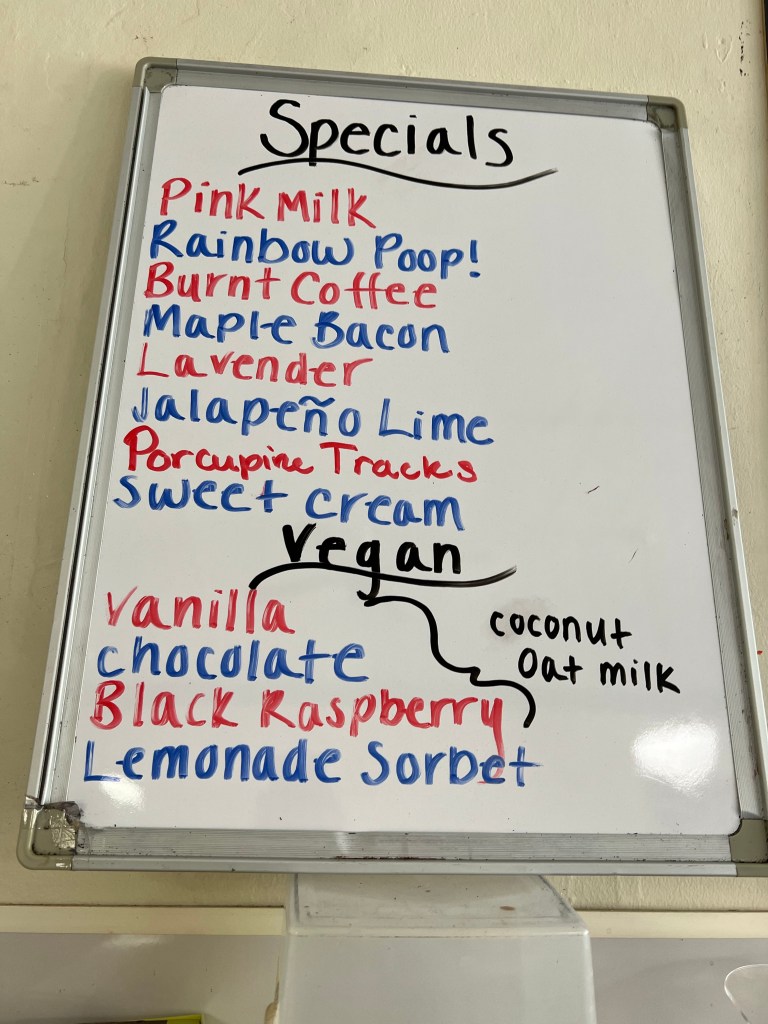 Specials
Pink Milk
Rainbow Poop!
Burnt Coffee
Maple Bacon
Lavender
Jalapeño Lime
Porcupine Tracks
sweet cream
Vegan
vanilla
chocolate
Black Raspberry
Lemonade Sorbet
coconut
oat milk